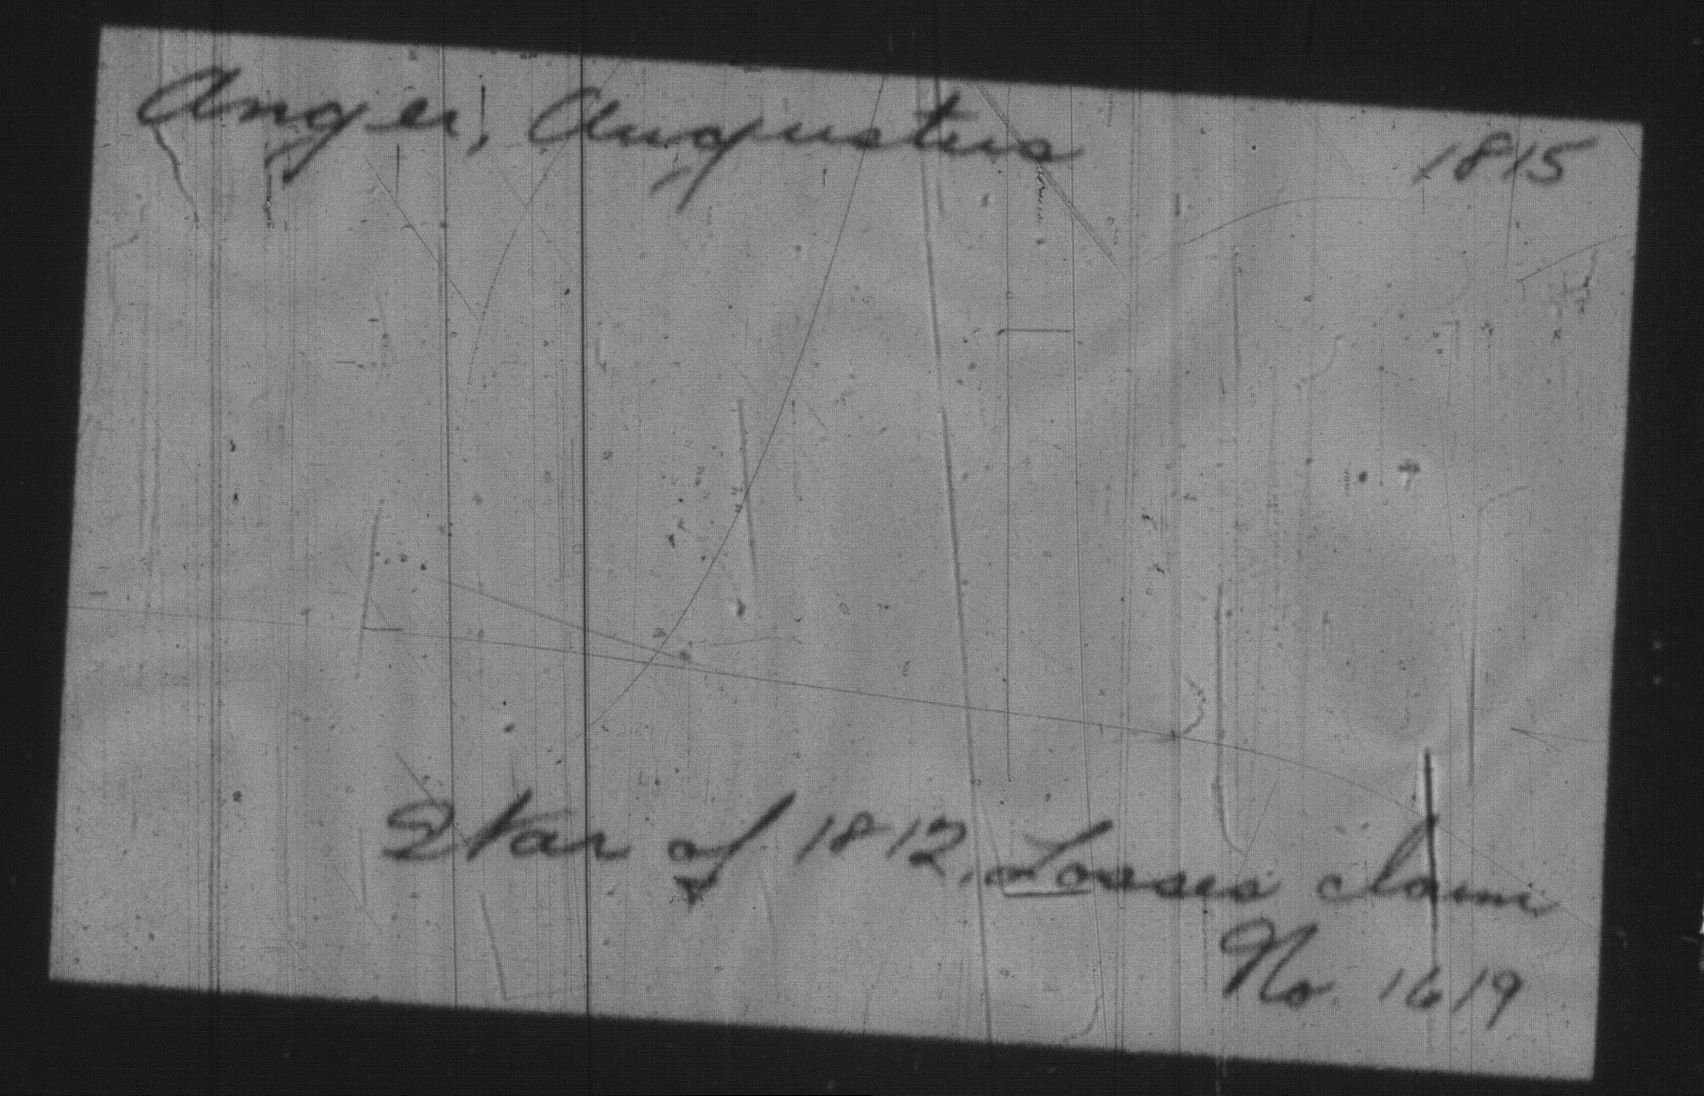 Anger, Augustus 1815
War of 1812, Losses claim
No. 1619